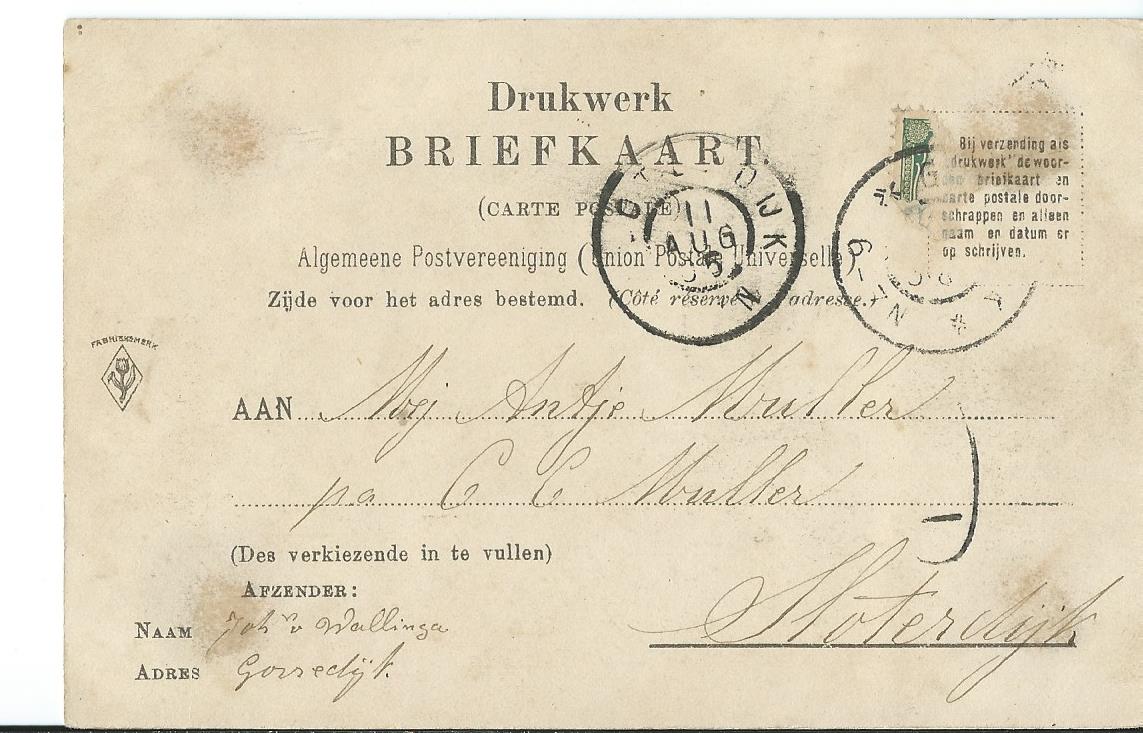 Drukwerk
BRIEFKAART.
(CARTE POSTALE)
Algemeene Postvereeniging (Union Postale Universelle)
Zijde voor het adres bestemd. (Côté réservé à l'adresse.)
Bij verzending als
„drukwerk” de woor-
den briefkaart en
carte postale door-
schrappen en alleen
naam en datum er
op schrijven.
SLOTERDIJK
11
AUG
05
N
N 6-7
FABRIEKSMERK
AAN Mej Antje Muller
pa C C Muller
Sloterdijk
(Des verkiezende in te vullen)
AFZENDER:
NAAM Joh v Wallinga
ADRES Gorredijk